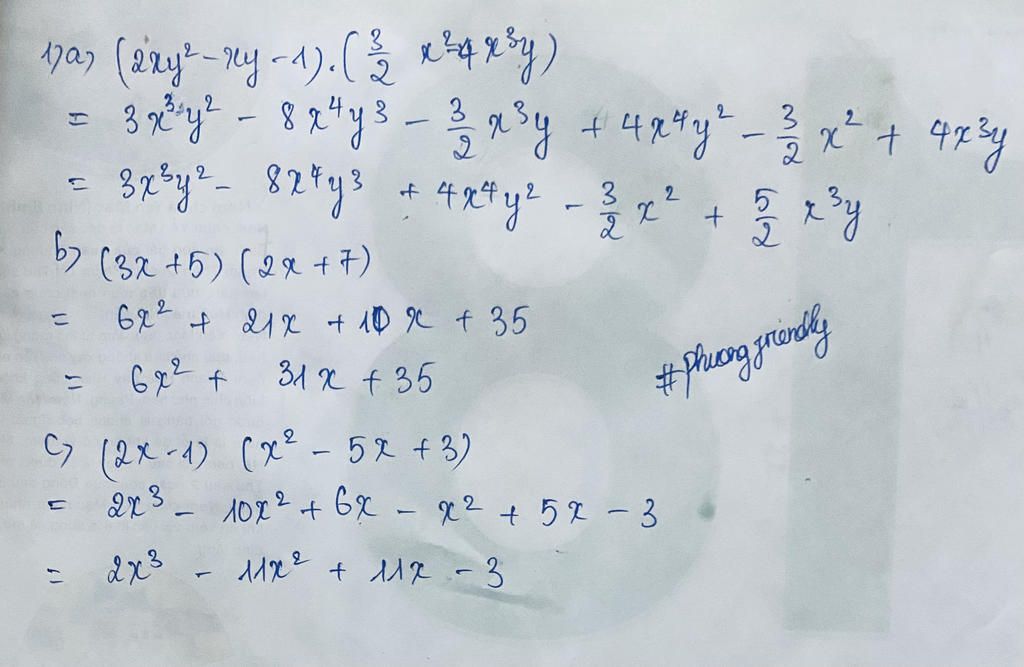 1) a) (2xy² - xy - 1) . (3/2 x² - 4x³y)
= 3x³y² - 8x⁴y³ - 3/2 x³y + 4x⁴y² - 3/2 x² + 4x³y
= 3x³y² - 8x⁴y³ + 4x⁴y² - 3/2 x² + 5/2 x³y
b) (3x + 5) (2x + 7)
= 6x² + 21x + 10x + 35
= 6x² + 31x + 35
#phuongfriendly
c) (2x - 1) (x² - 5x + 3)
= 2x³ - 10x² + 6x - x² + 5x - 3
= 2x³ - 11x² + 11x - 3